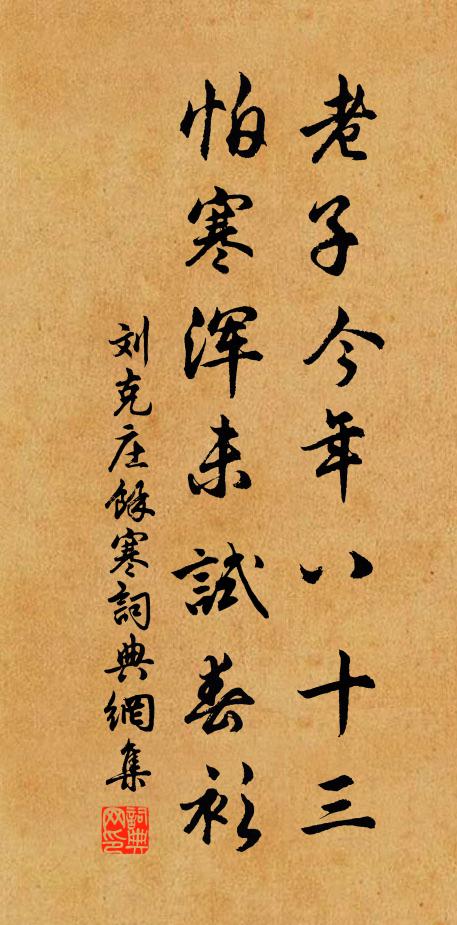 老子今年八十三
怕寒渾未試春衫
刘克庄餘寒詞典網集
詞典网印